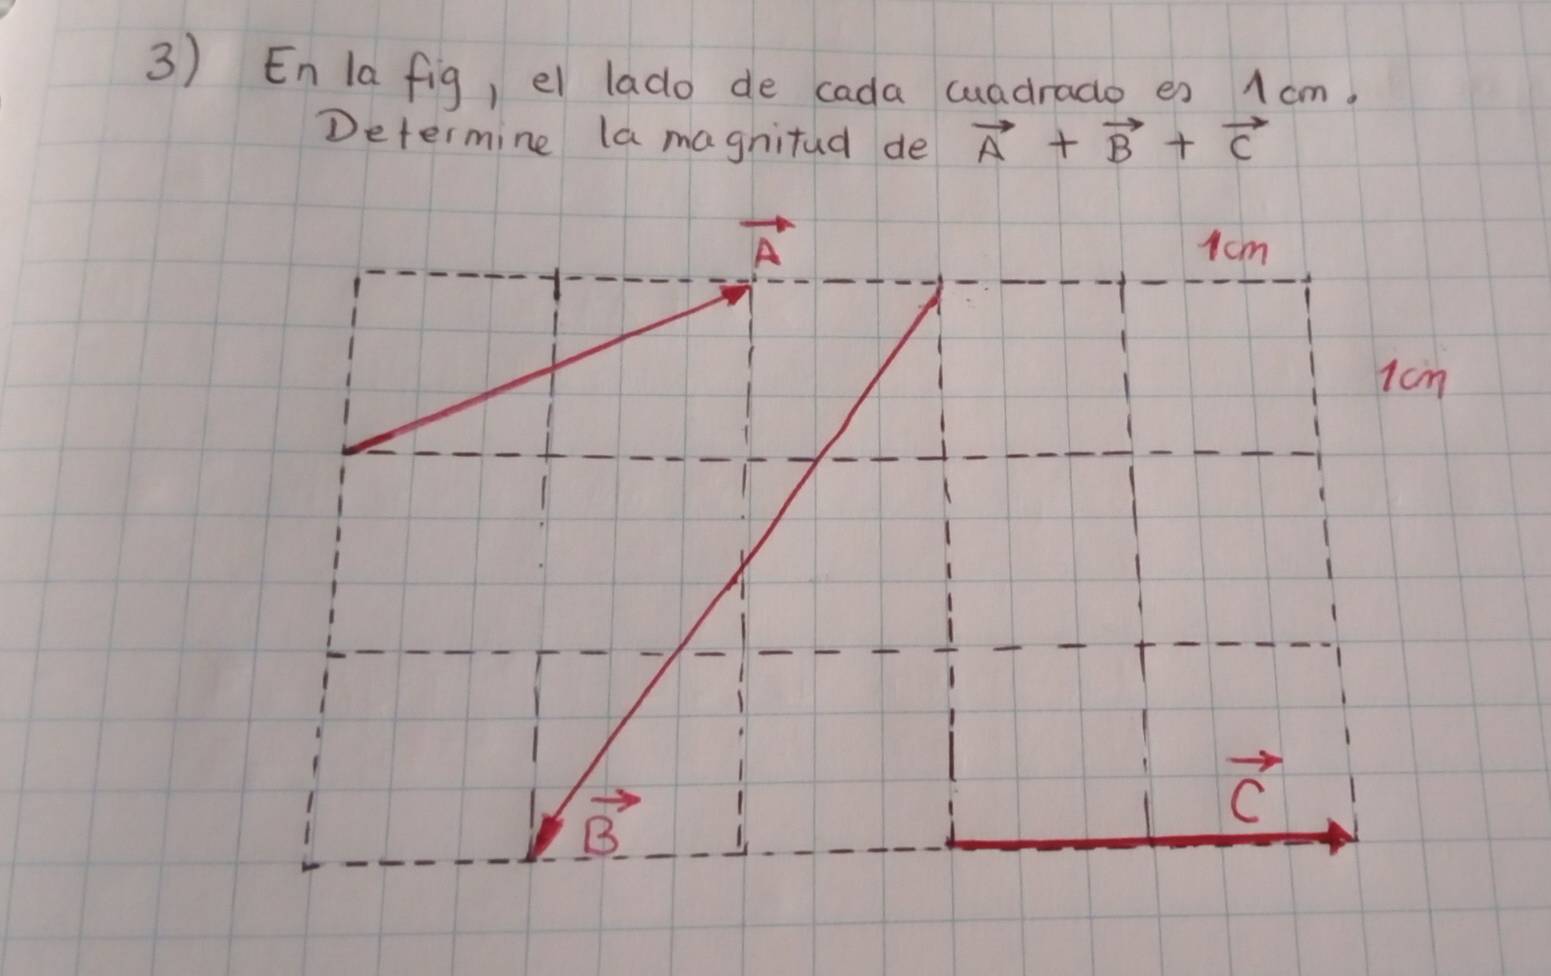 3) En la fig, el lado de cada cuadrado es 1cm.
Determine la magnitud de A⃗ + B⃗ + C⃗
A⃗
1cm
1cm
C⃗
B⃗